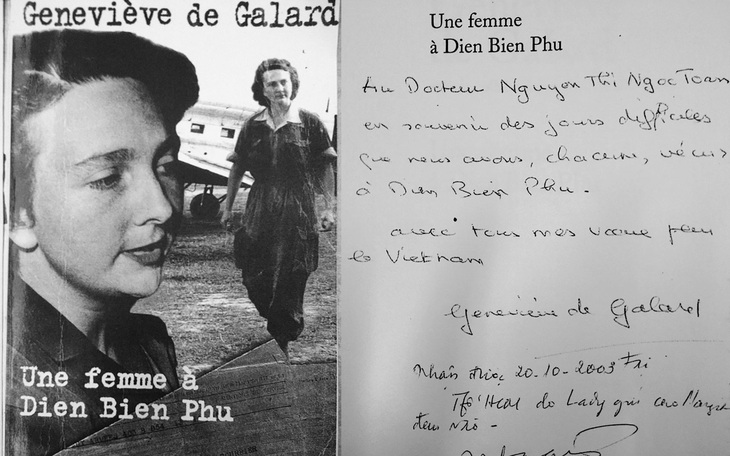 Geneviève de Galard
Une femme à
Dien Bien Phu
Une femme
à Dien Bien Phu
Au Docteur Nguyen Thi Ngoc Toan
en souvenir des jours difficiles
que nous avons, chacune, vécus
à Dien Bien Phu.
avec tous mes vœux pour
le Vietnam
Geneviève de Galard
Nhận được 20-10-2003
do Lady